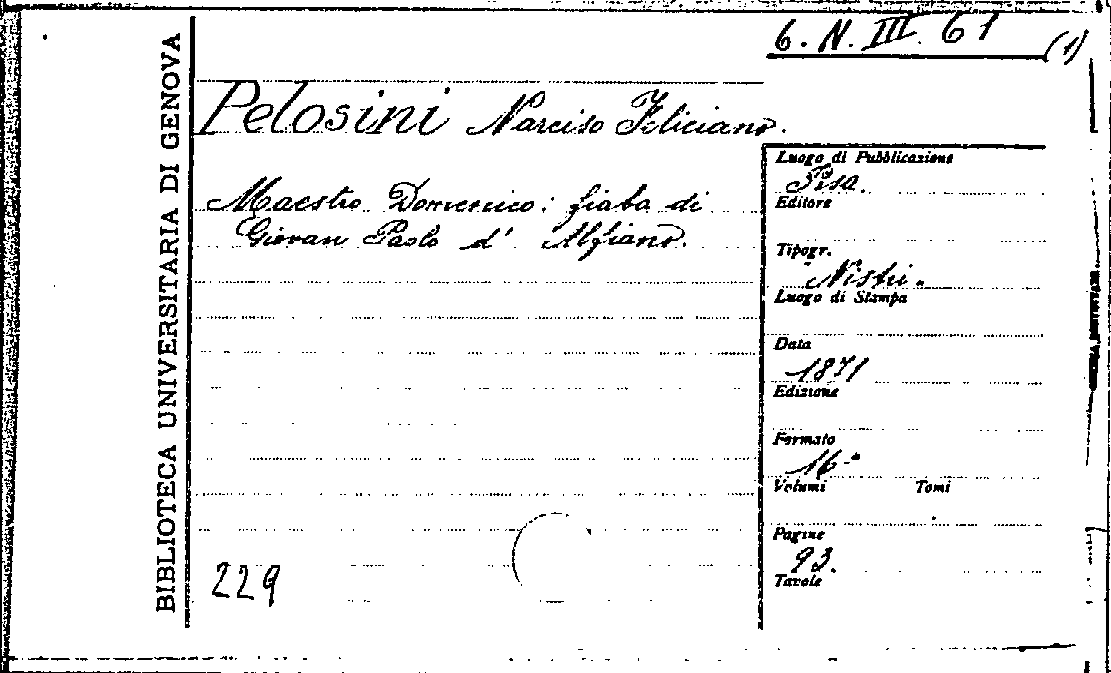 6. N. III. 61
(1)
BIBLIOTECA UNIVERSITARIA DI GENOVA
Pelosini Narciso Feliciano.
Maestro Domenico: fiaba di
Giovan Paolo d' Alfiano.
Luogo di Pubblicazione
Pisa.
Editore
Tipogr.
Nistri.
Luogo di Stampa
Data
1871
Edizione
Formato
16º
Volumi Tomi
Pagine
93.
Tavole
229